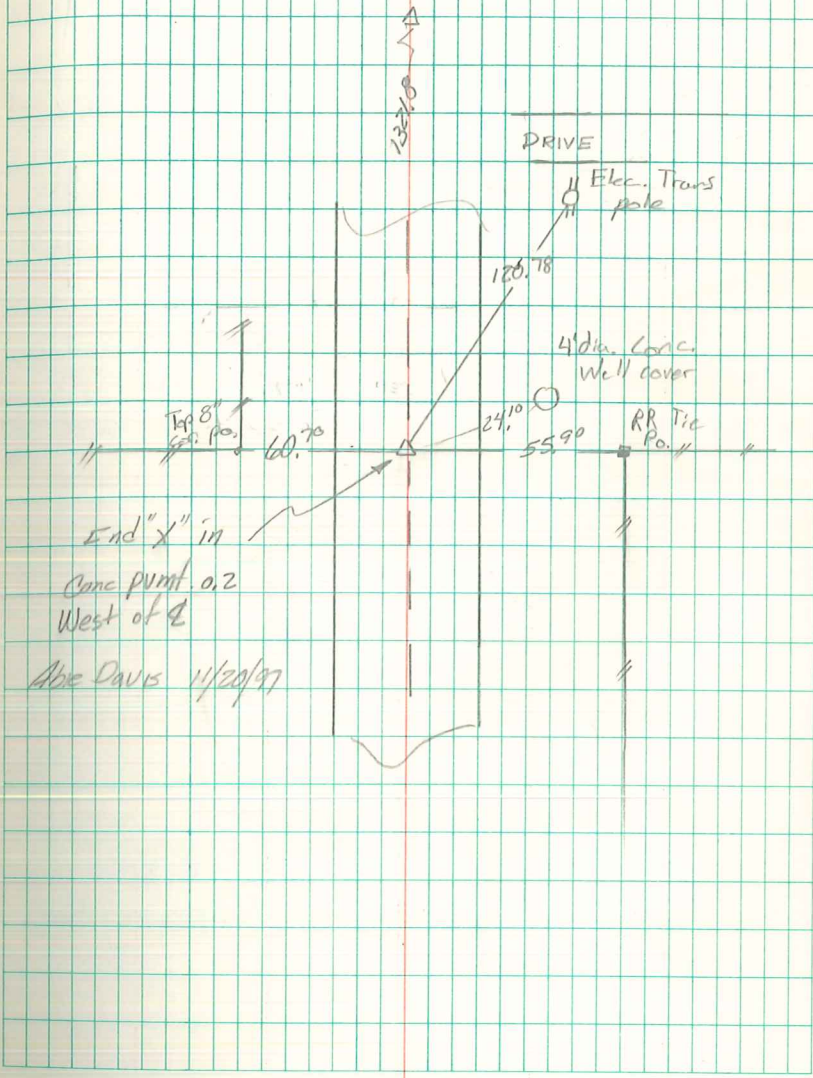 DRIVE
Elec. Trans
pole
120.78
4' dia. Conc.
Well cover
24.10
Top 8"
po.
60.70
55.90
RR Tie
Po.
"X" in
Conc pvmt. 0.2
West of ℄
Abie Davis 11/20/97